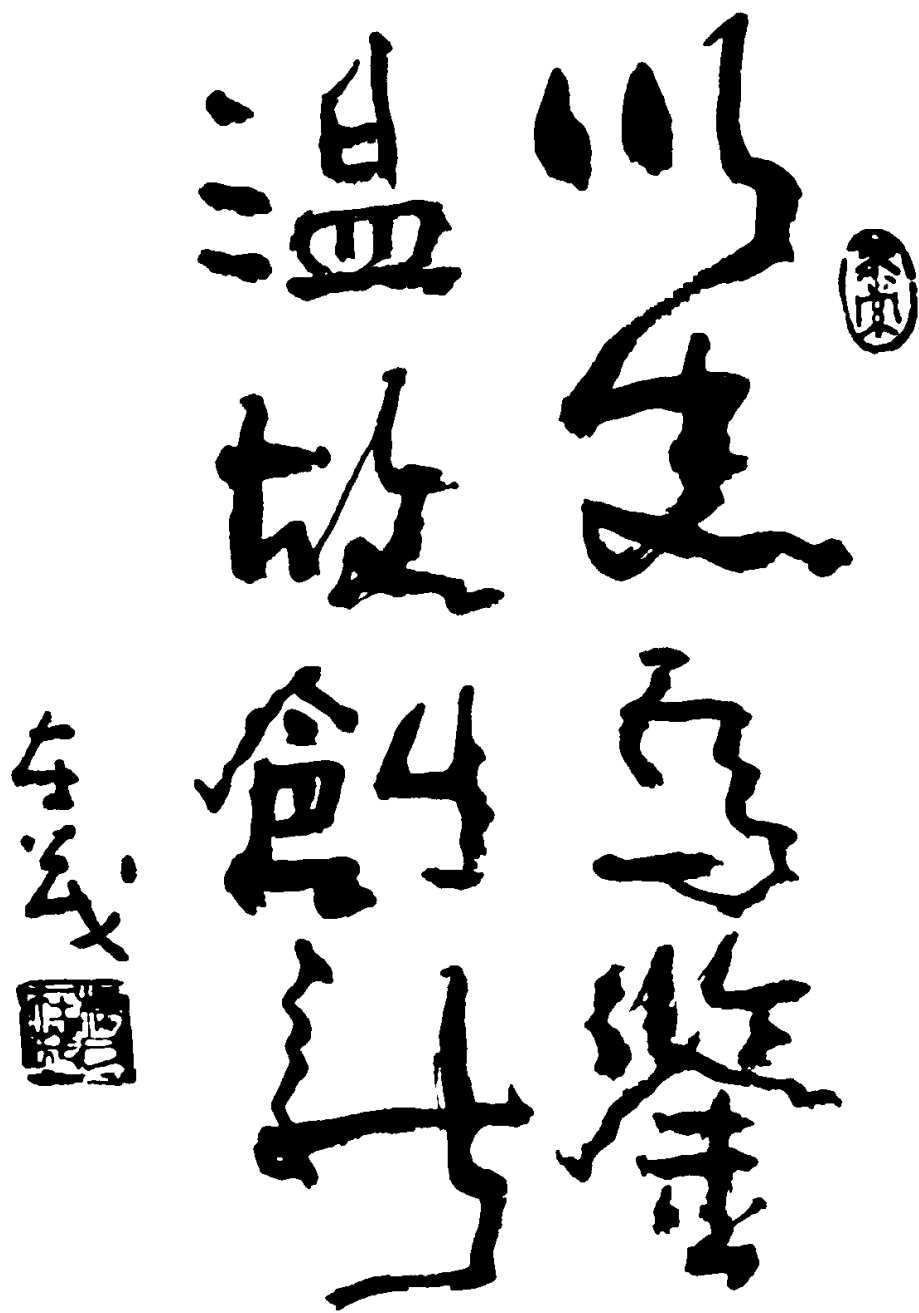 以史為鑒
溫故創新
在義